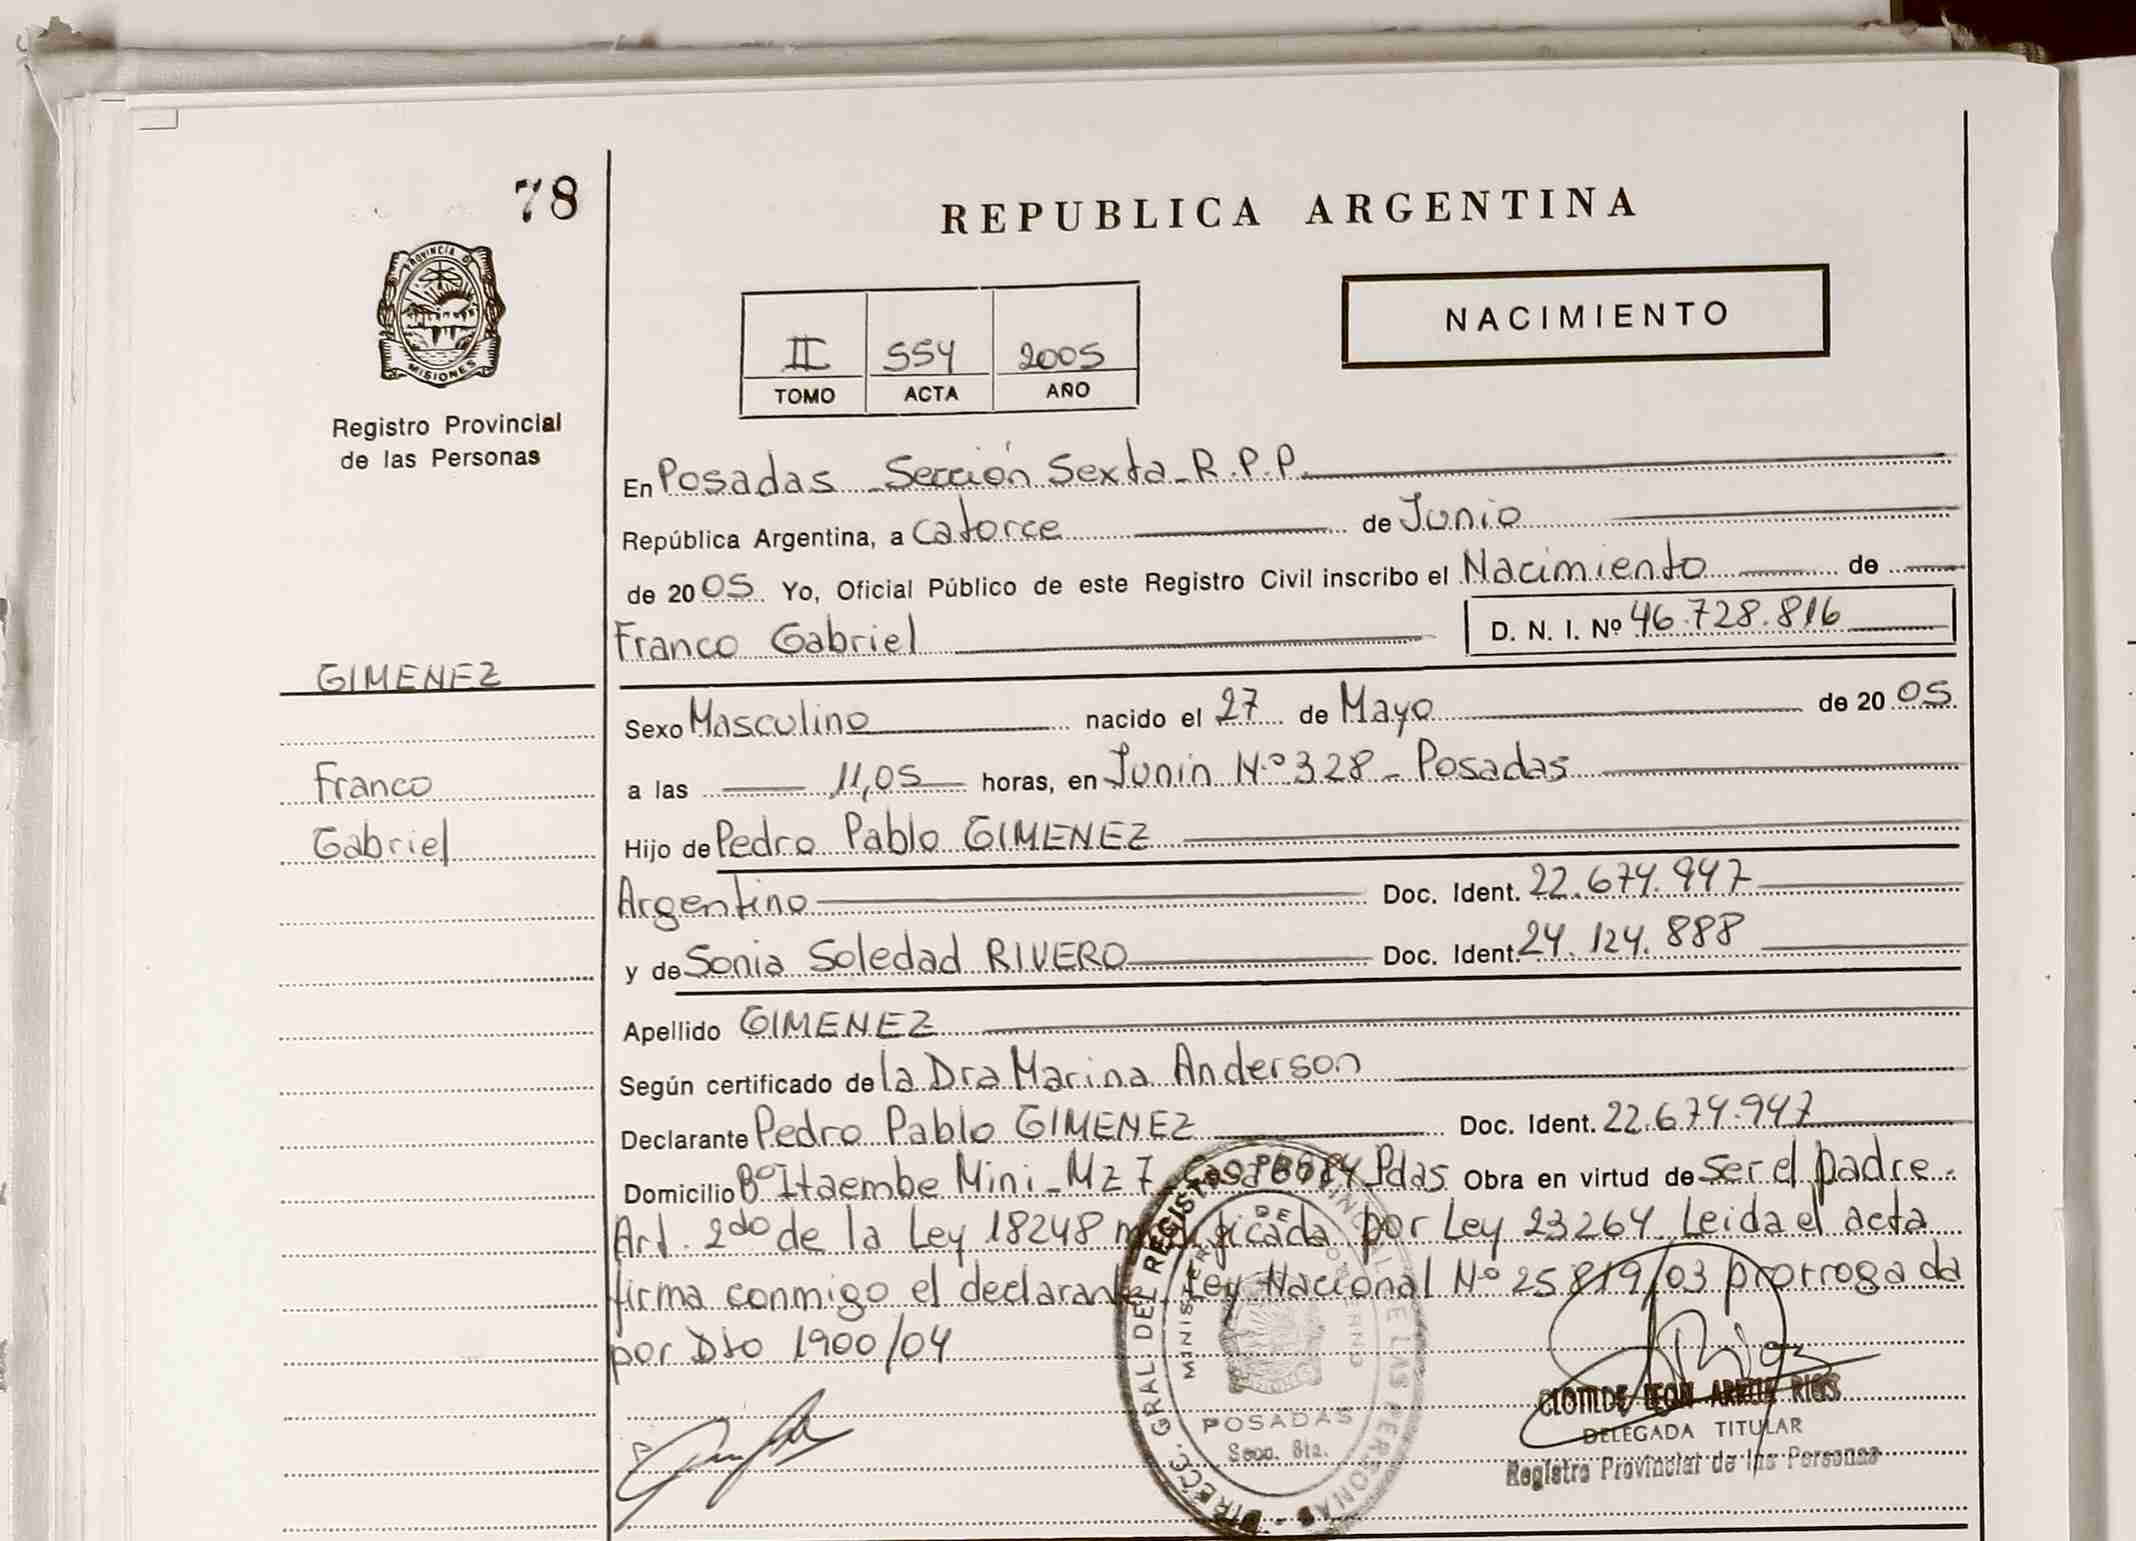 78
REPUBLICA ARGENTINA
PROVINCIA DE
MISIONES
Registro Provincial
de las Personas
NACIMIENTO
II 554 2005
TOMO ACTA AÑO
En Posadas - Sección Sexta - R.P.P.
República Argentina, a catorce de Junio
de 2005 Yo, Oficial Público de este Registro Civil inscribo el Nacimiento de
Franco Gabriel D. N. I. Nº 46.728.816
GIMENEZ
Sexo Masculino nacido el 27 de Mayo de 2005
Franco
a las 11,05 horas, en Junin Nº 328 - Posadas
Gabriel
Hijo de Pedro Pablo GIMENEZ
Argentino Doc. Ident. 22.674.947
y de Sonia Soledad RIVERO Doc. Ident. 24.124.888
Apellido GIMENEZ
Según certificado de la Dra Marina Anderson
Declarante Pedro Pablo GIMENEZ Doc. Ident. 22.674.947
Domicilio Bº Itaembe Mini - Mz 7 Pdas Obra en virtud de ser el padre.
Art. 2do de la Ley 18248 modificada por Ley 23264 Leida el acta
firma conmigo el declarante, Ley Nacional Nº 25819/03 prorrogada
por Dto 1900/04
DIRECC. GRAL DEL REGISTRO PROVINCIAL DE LAS PERSONAS
MINISTERIO DE GOBIERNO
POSADAS
Secc. 6ta.
CLOTILDE RIOS
DELEGADA TITULAR
Registro Provincial de las Personas